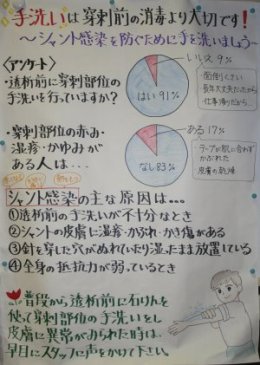 手洗いは穿刺前の消毒より大切です!
～シャント感染を防ぐために手を洗いましょう～
〈アンケート〉
・透析前に穿刺部位の
手洗いを行っていますか?
いいえ 9%
はい 91%
・面倒くさい
・長年大丈夫だったから
・仕事帰りだから
・穿刺部位の赤み・
湿疹・かゆみが
ある人は…
ある 17%
なし 83%
・テープが肌に合わず
かぶれた
・皮膚の乾燥
シャント感染の主な原因は…
①透析前の手洗いが不十分なとき
②シャントの皮膚に湿疹・かぶれ・かき傷がある
③針を穿した穴がぬれていたり湿ったまま放置している
④全身の抵抗力が弱っているとき
普段から透析前に石けんを
使って穿刺部位の手洗いをし
皮膚に異常がみられた時は、
早目にスタッフに声をかけて下さい。